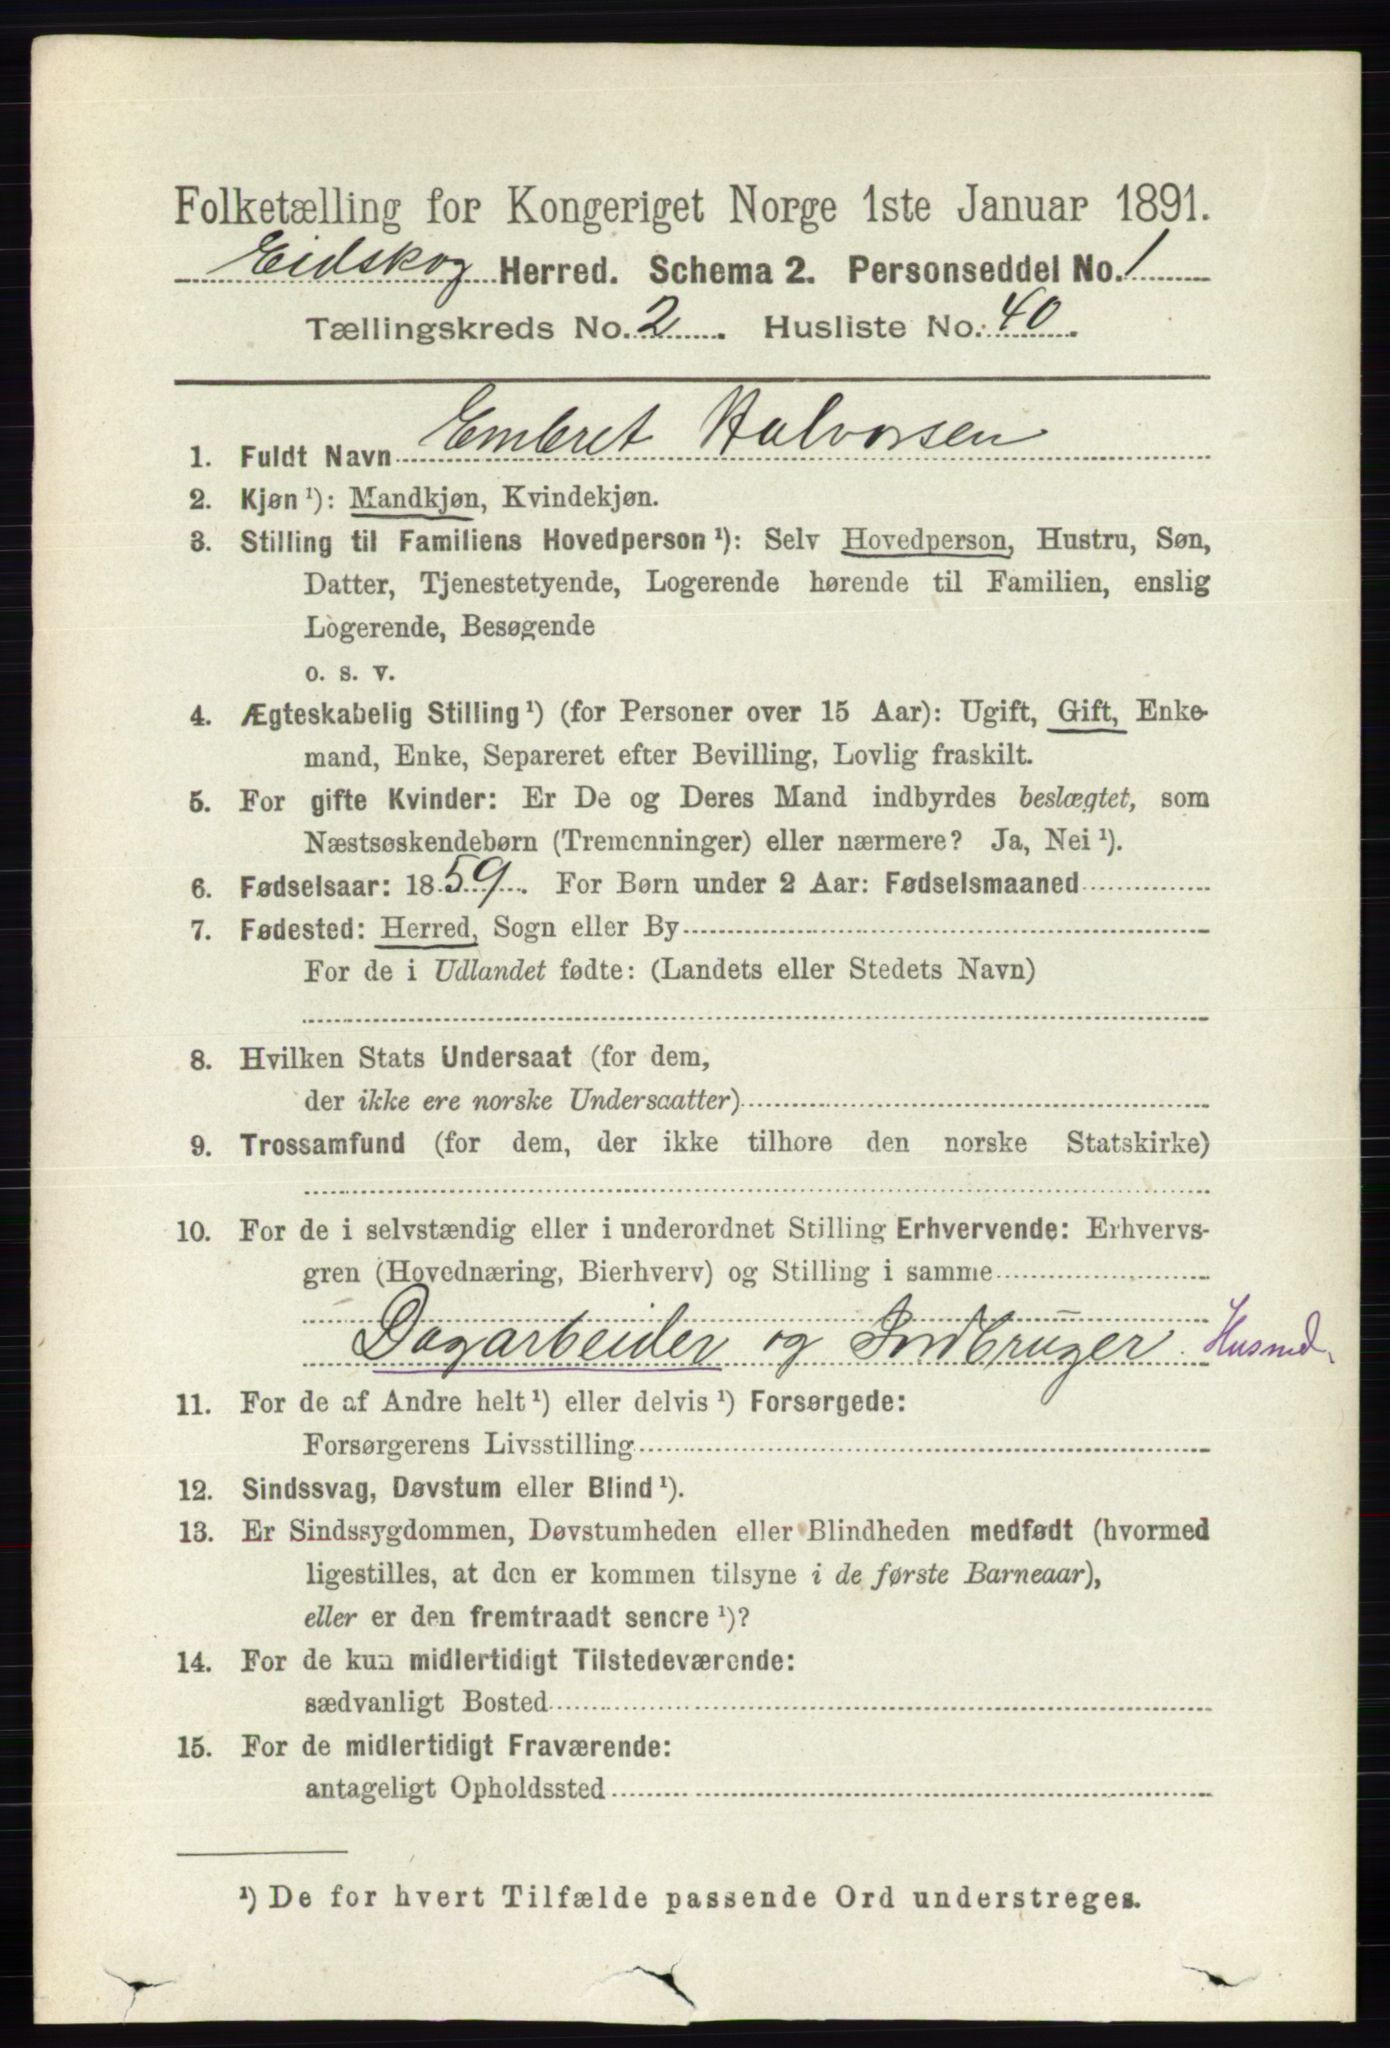 Folketælling for Kongeriget Norge 1ste Januar 1891.
Eidskog Herred. Schema 2. Personseddel No. 1
Tællingskreds No. 2. Husliste No. 40.
1. Fuldt Navn Embret Halvorsen
2. Kjøn ¹): Mandkjøn, Kvindekjøn.
3. Stilling til Familiens Hovedperson ¹): Selv Hovedperson, Hustru, Søn,
Datter, Tjenestetyende, Logerende hørende til Familien, enslig
Logerende, Besøgende
o. s. v.
4. Ægteskabelig Stilling ¹) (for Personer over 15 Aar): Ugift, Gift, Enke-
mand, Enke, Separeret efter Bevilling, Lovlig fraskilt.
5. For gifte Kvinder: Er De og Deres Mand indbyrdes beslægtet, som
Næstsøskendebørn (Tremenninger) eller nærmere? Ja, Nei ¹).
6. Fødselsaar: 1859. For Børn under 2 Aar: Fødselsmaaned
7. Fødested: Herred, Sogn eller By
For de i Udlandet fødte: (Landets eller Stedets Navn)
8. Hvilken Stats Undersaat (for dem,
der ikke ere norske Undersaatter)
9. Trossamfund (for dem, der ikke tilhøre den norske Statskirke)
10. For de i selvstændig eller i underordnet Stilling Erhvervende: Erhvervs-
gren (Hovednæring, Bierhverv) og Stilling i samme
Dagarbeider og Jordbruger Husmd.
11. For de af Andre helt ¹) eller delvis ¹) Forsørgede:
Forsørgerens Livsstilling
12. Sindssvag, Døvstum eller Blind ¹).
13. Er Sindssygdommen, Døvstumheden eller Blindheden medfødt (hvormed
ligestilles, at den er kommen tilsyne i de første Barneaar),
eller er den fremtraadt senere ¹)?
14. For de kun midlertidigt Tilstedeværende:
sædvanligt Bosted
15. For de midlertidigt Fraværende:
antageligt Opholdssted
¹) De for hvert Tilfælde passende Ord understreges.